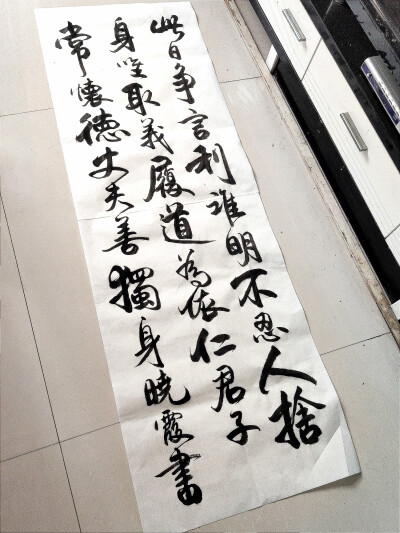 此日争言利谁明不忍人捨
身唑取義履道為依仁君子
常懷德丈夫善獨身晓霞書